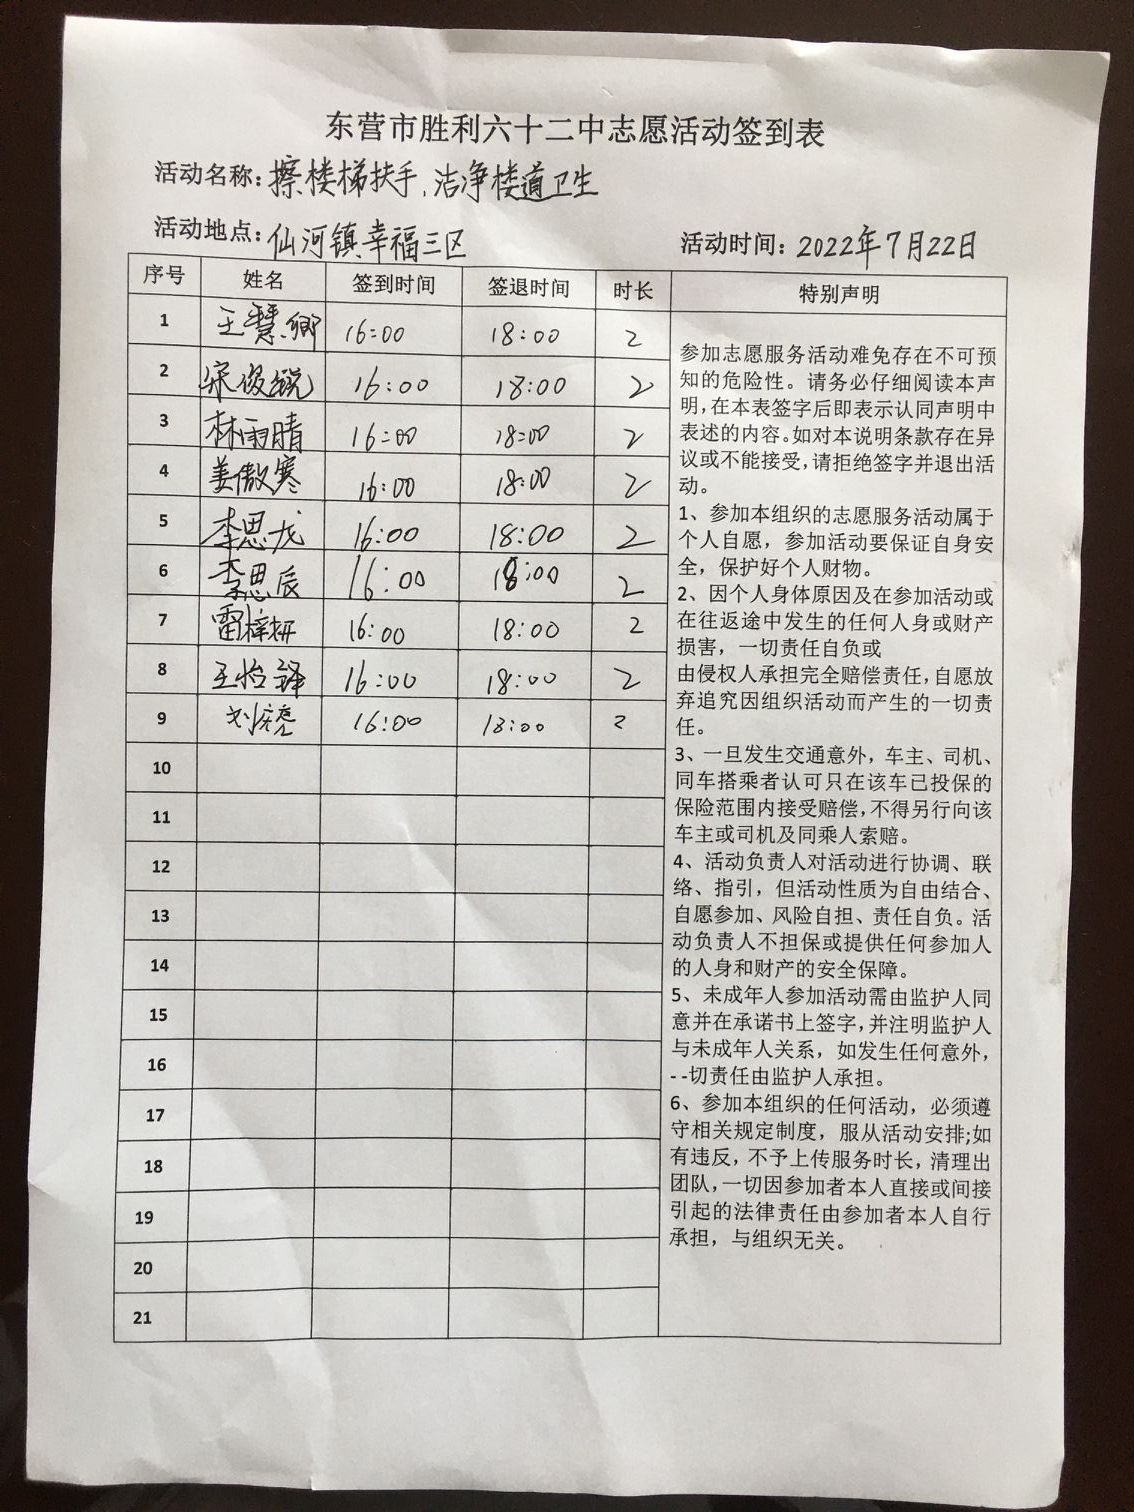 东营市胜利六十二中志愿活动签到表
活动名称:擦楼梯扶手、洁净楼道卫生
活动地点:仙河镇幸福三区 活动时间:2022年7月22日
序号 姓名 签到时间 签退时间 时长 特别声明
1 王慧卿 16:00 18:00 2
2 宋俊锐 16:00 18:00 2
3 林雨晴 16:00 18:00 2
4 姜傲寒 16:00 18:00 2
5 李思龙 16:00 18:00 2
6 李思辰 16:00 18:00 2
7 雷梓妍 16:00 18:00 2
8 王怡铎 16:00 18:00 2
9 16:00 18:00 2
10
11
12
13
14
15
16
17
18
19
20
21
参加志愿服务活动难免存在不可预
知的危险性。请务必仔细阅读本声
明,在本表签字后即表示认同声明中
表述的内容。如对本说明条款存在异
议或不能接受,请拒绝签字并退出活
动。
1、参加本组织的志愿服务活动属于
个人自愿，参加活动要保证自身安
全，保护好个人财物。
2、因个人身体原因及在参加活动或
在往返途中发生的任何人身或财产
损害，一切责任自负或
由侵权人承担完全赔偿责任,自愿放
弃追究因组织活动而产生的一切责
任。
3、一旦发生交通意外，车主、司机、
同车搭乘者认可只在该车已投保的
保险范围内接受赔偿,不得另行向该
车主或司机及同乘人索赔。
4、活动负责人对活动进行协调、联
络、指引，但活动性质为自由结合、
自愿参加、风险自担、责任自负。活
动负责人不担保或提供任何参加人
的人身和财产的安全保障。
5、未成年人参加活动需由监护人同
意并在承诺书上签字,并注明监护人
与未成年人关系，如发生任何意外，
--切责任由监护人承担。
6、参加本组织的任何活动，必须遵
守相关规定制度，服从活动安排;如
有违反，不予上传服务时长，清理出
团队,一切因参加者本人直接或间接
引起的法律责任由参加者本人自行
承担，与组织无关。